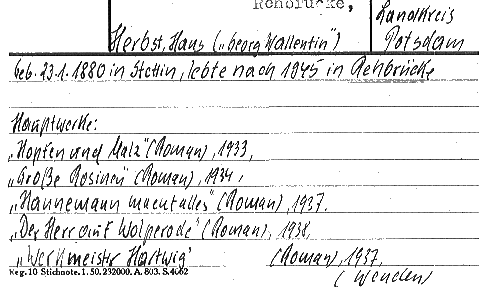 Rehbrücke,
Landkreis
Potsdam
Herbst, Hans („Georg Wallentin")
geb. 23.1.1880 in Stettin, lebte nach 1945 in Rehbrücke
Hauptwerke:
„Hopfen und Malz" (Roman), 1933,
„Große Rosinen" (Roman), 1934,
„Hannemann macht alles" (Roman), 1937.
„Der Herr auf Wolperode" (Roman), 1938,
„Werkmeister Hartwig" (Roman), 1937,
(Wenden)
Reg. 10 Stichnote. 1. 50. 232000. A. 803. S. 4062